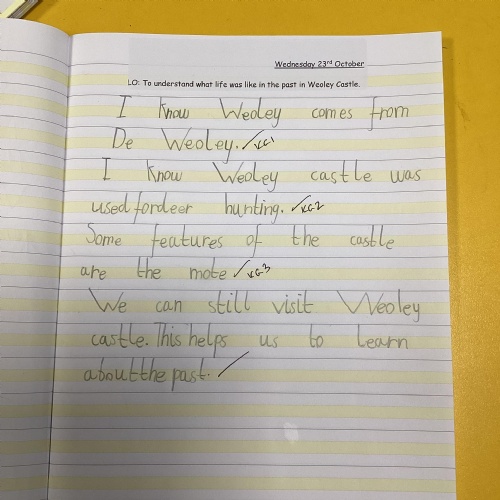 Wednesday 23rd October
LO: To understand what life was like in the past in Weoley Castle.
I know Weoley comes from
De Weoley. ✓KG1
I know Weoley castle was
used fordeer hunting. ✓KG2
Some features of the castle
are the mote ✓KG3
We can still visit Weoley
castle. This helps us to learn
aboutthe past. ✓